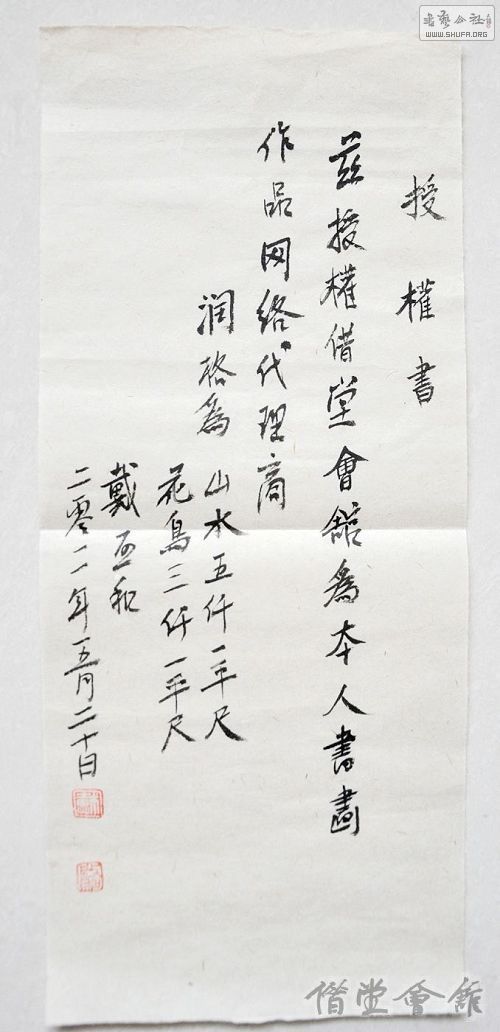 授權書
茲授權借堂會館為本人書畫
作品网络代理商
润格為 山水五仟一平尺
花鳥三仟一平尺
戴 和
二零一一年五月二十日
書藝公社
WWW.SHUFA.ORG
借堂會館